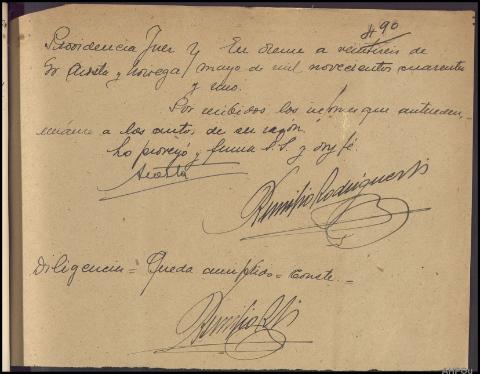 90
Providencia Juez Y En Orense a veintiseis de
Sr Acosta y Noriega / mayo de mil novecientos cuarenta
y uno.
Por recibidos los informes que anteceden,
unanse a los autos de su razón.
Lo proveyó y firma S.S. y doy fé.
Acosta
Diligencia = Queda cumplido = Conste. =